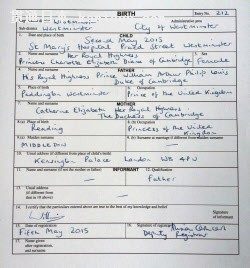 BIRTH
Entry No. 212
Westminster
Administrative area
Westminster
City of Westminster
1. Date and place of birth
CHILD
Second May 2015
St. Mary's Hospital Praed Street Westminster
2. Name and surname
Her Royal Highness
3. Sex
Princess Charlotte Elizabeth Diana of Cambridge
Female
4. Name and surname
FATHER
His Royal Highness Prince William Arthur Philip Louis
Duke of Cambridge
5. Place of birth
6. Occupation
Paddington Westminster
Prince of the United Kingdom
7. Name and surname
MOTHER
Catherine Elizabeth Her Royal Highness
The Duchess of Cambridge
8.(a) Place of birth
8.(b) Occupation
Reading
Princess of the United Kingdom
9.(a) Maiden surname
MIDDLETON
10. Usual address (if different from place of child's birth)
Kensington Palace London W8 4PU
11. Name and surname (if not the mother or father)
INFORMANT
12. Qualification
Father
13. Usual address
(if different from
that in 10 above)
14. I certify that the particulars entered above are true to the best of my knowledge and belief
Signature
of informant
15. Date of registration
Fifth May 2015
16. Signature of registrar
Deputy Registrar
17. Name given
after registration,
and surname